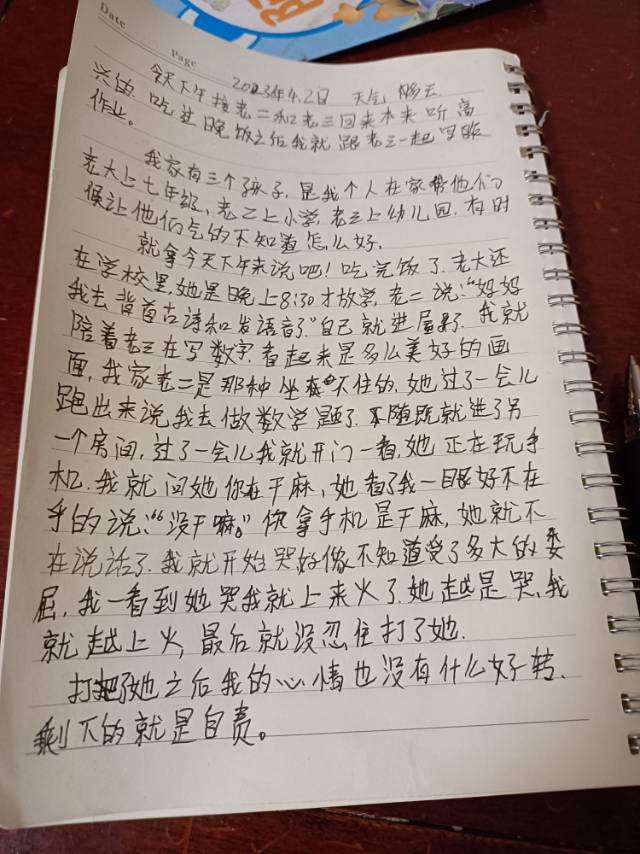 Date
Page
2023年4.2日 天气 多云
今天下午接老二和老三回来本来听高
兴的. 吃过晚饭之后我就跟老三一起写
作业。
我家有三个孩子, 是我个人在家带他们
老大上七年级、老二上小学, 老三上幼儿园. 有时
候让他们气的不知道怎么好.
就拿今天下午来说吧! 吃完饭了. 老大还
在学校里, 她是晚上8:30才放学, 老二说:“好好
我去背首古诗和发语音了”自己就进屋了. 我就
陪着老三在写数字. 看起来是多么美好的画
面, 我家老二是那种坐不住的. 她过了一会儿
跑出来说我去做数学题了. 随既就进了另
一个房间, 过了一会儿我就开门一看, 她正在玩手
机. 我就问她你在干麻, 她看了我一眼好不在
乎的说:“没干嘛。”你拿手机是干麻, 她就不
在说话了. 我就开始哭好像不知道受了多大的委
屈, 我一看到她哭我就上来火了. 她越是哭、我
就越上火, 最后就没忍住打了她.
打了她之后我的心情也没有什么好转、
剩下的就是自责。